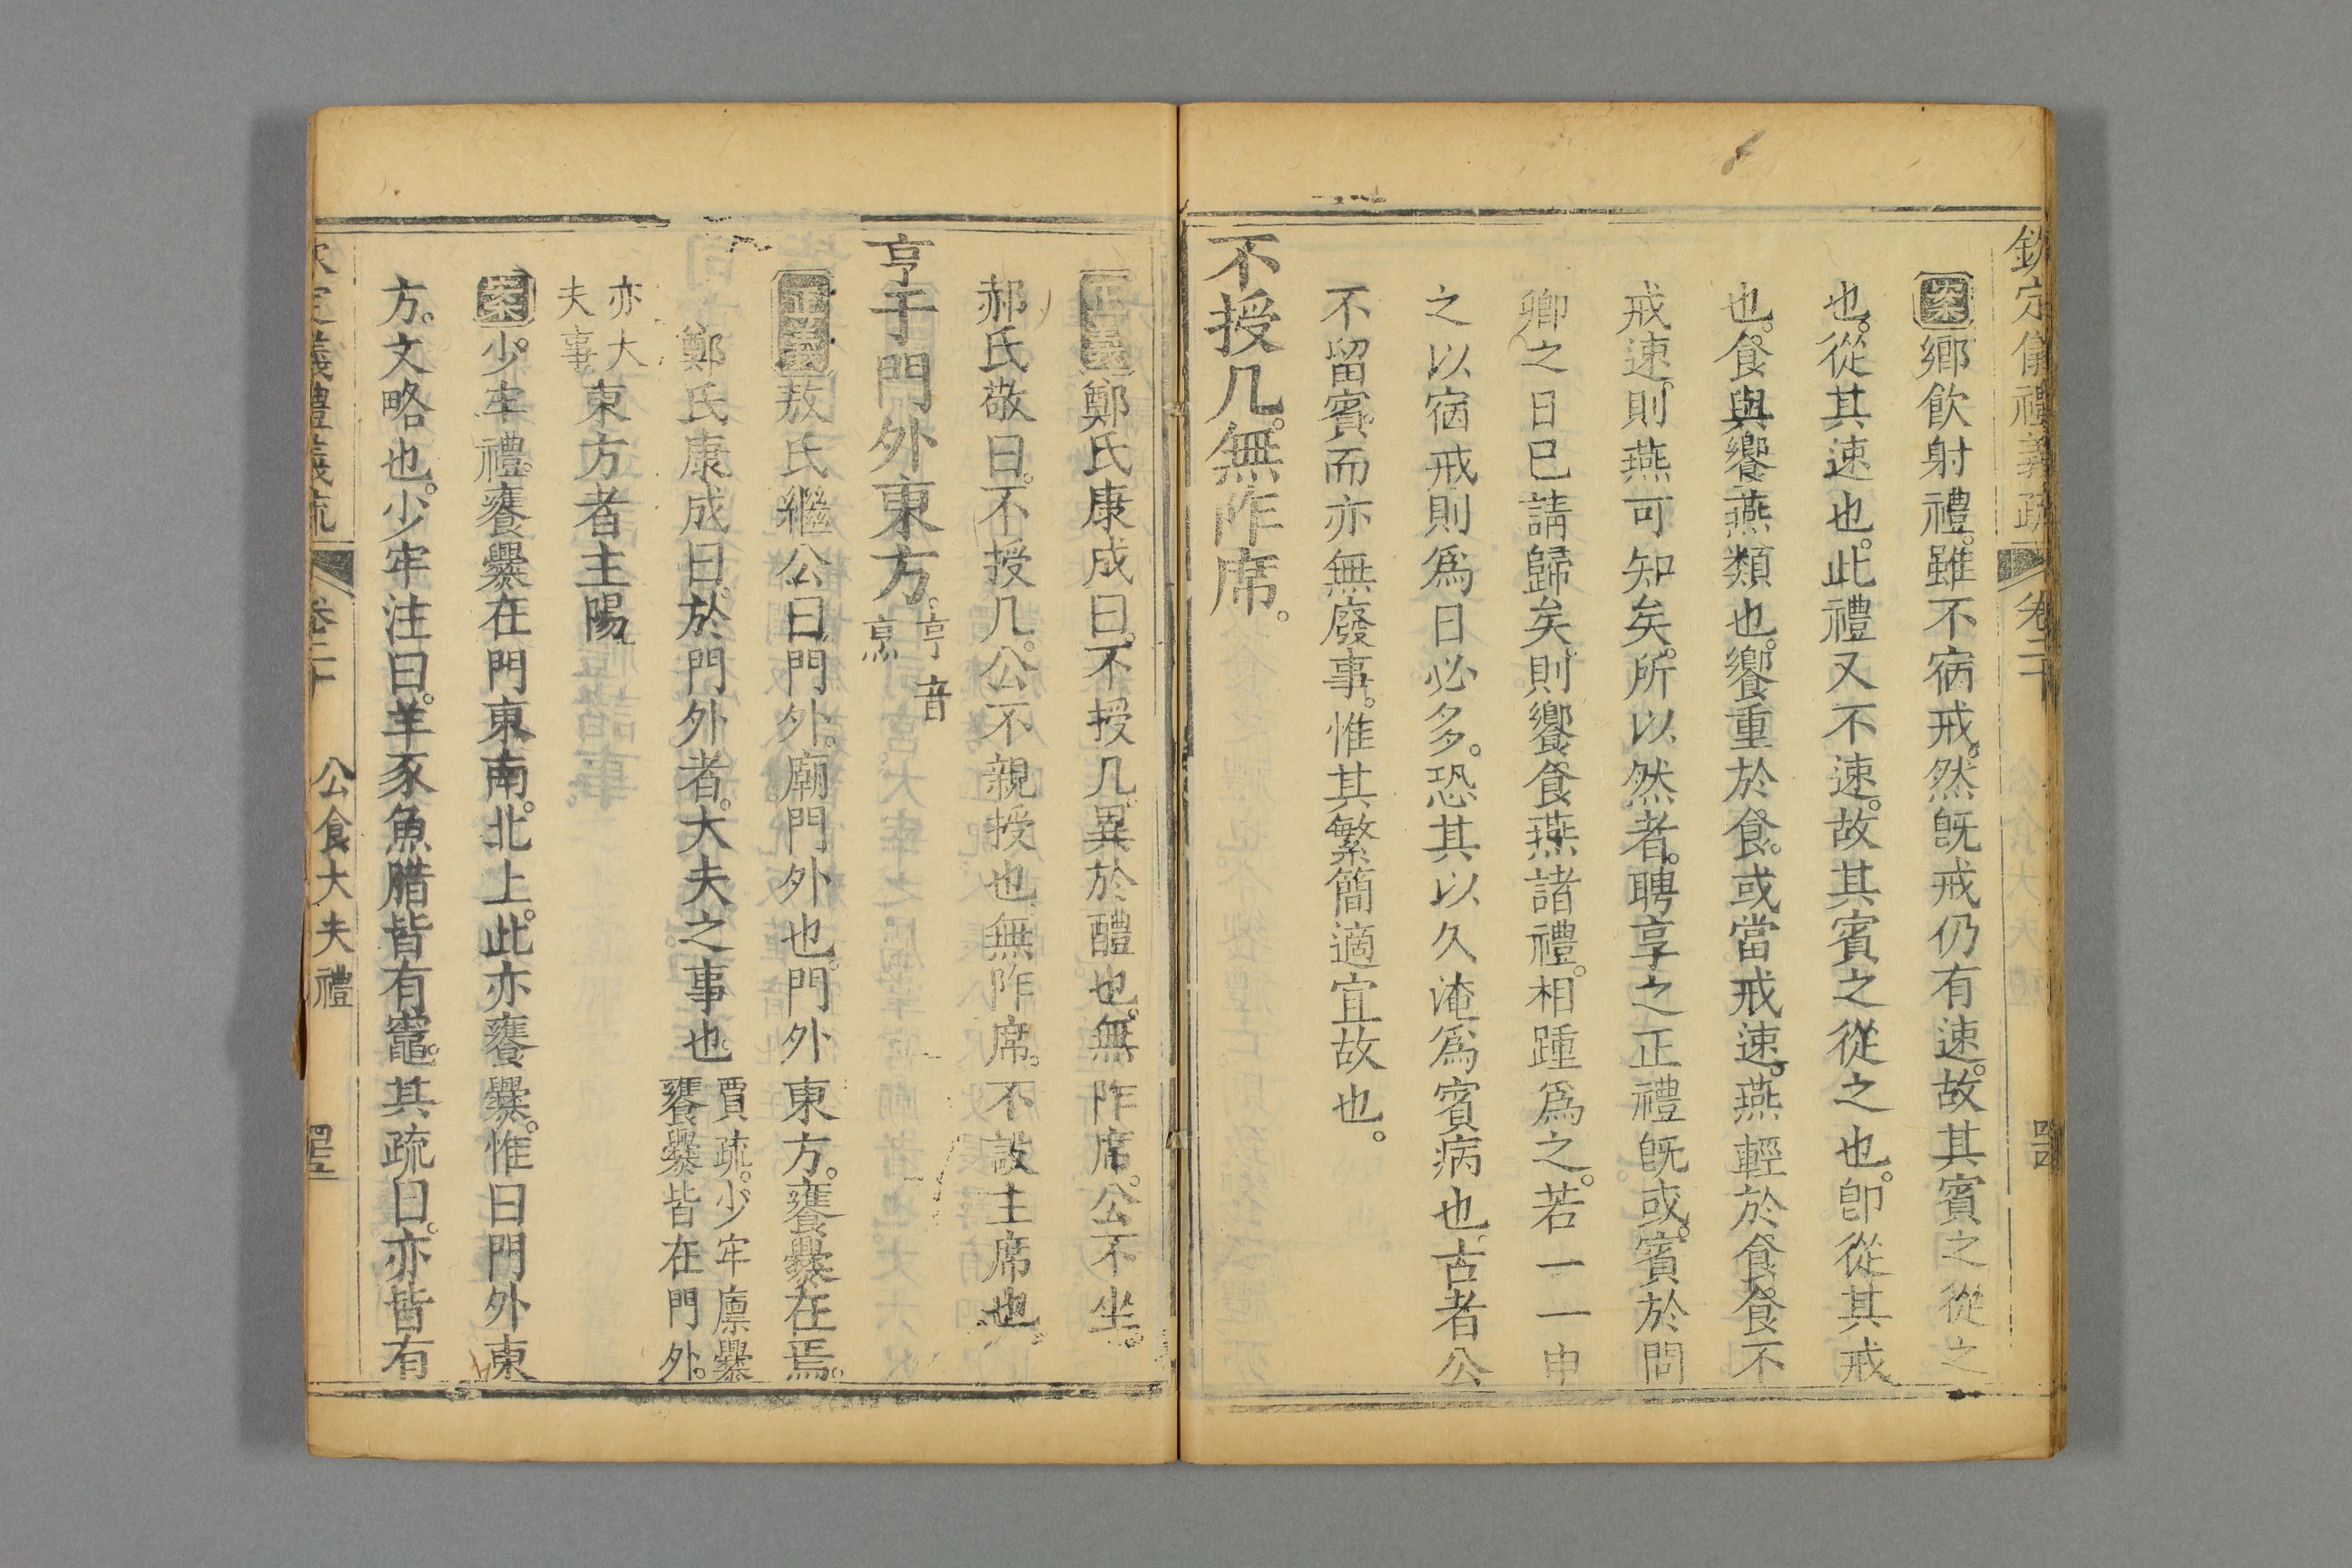 欽定儀禮義疏 卷二十 四十四
案鄉飲射禮。雖不病戒。然旣戒仍有速。故其賓之從之
也。從其速也。此禮又不速。故其賓之從之也。卽從其戒
也。食與饗燕類也。饗重於食。或當戒速。燕輕於食。食不
戒速。則燕可知矣。所以然者。聘享之正禮旣或。賓於問
卿之日已請歸矣。則饗食燕諸禮。相踵爲之。若一一申
之以宿戒則爲日必多。恐其以久淹爲賓病也。古者公
不留賓。而亦無廢事。惟其繁簡適宜故也。
不授几。無阼席。
正義鄭氏康成曰。不授几。異於醴也。無阼席。公不坐。
郝氏敬曰。不授几。公不親授也。無阼席。不設主席也。
亨于門外東方。亨音烹
正義敖氏繼公曰。門外。廟門外也。門外東方。饔爨在焉。
鄭氏康成曰。於門外者。大夫之事也。賈疏。少牢廩爨饔爨皆在門外。
亦大夫事東方者主陽。
案少牢禮。饔爨在門東南。北上。此亦饔爨。惟曰門外東
方。文略也。少牢注曰。羊豕魚腊皆有竈。其疏曰。亦皆有
欽定儀禮義疏 卷二十 公食大夫禮 四十五